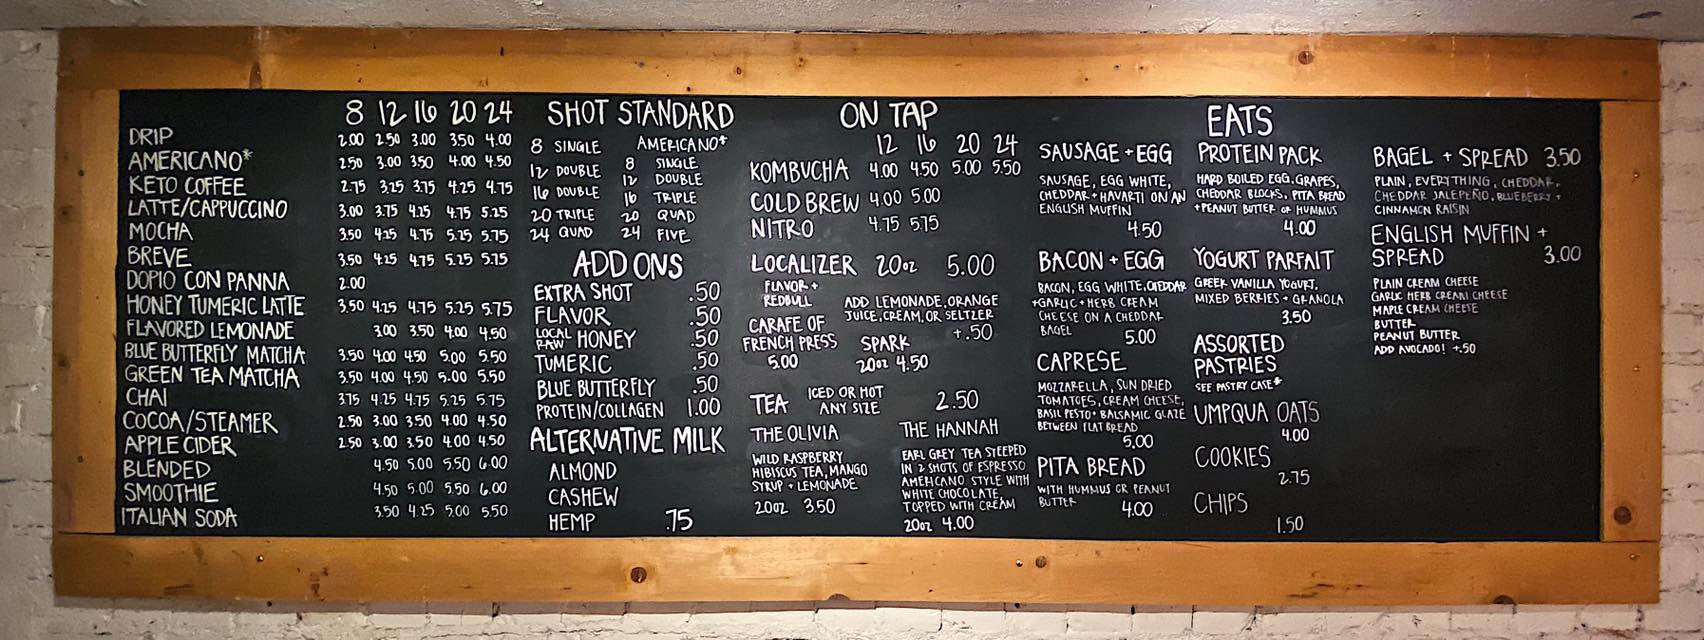 8 12 16 20 24
DRIP 2.00 2.50 3.00 3.50 4.00
AMERICANO* 2.50 3.00 3.50 4.00 4.50
KETO COFFEE 2.75 3.25 3.75 4.25 4.75
LATTE/CAPPUCCINO 3.00 3.75 4.25 4.75 5.25
MOCHA 3.50 4.25 4.75 5.25 5.75
BREVE 3.50 4.25 4.75 5.25 5.75
DOPIO CON PANNA 2.00
HONEY TUMERIC LATTE 3.50 4.25 4.75 5.25 5.75
FLAVORED LEMONADE 3.00 3.50 4.00 4.50
BLUE BUTTERFLY MATCHA 3.50 4.00 4.50 5.00 5.50
GREEN TEA MATCHA 3.50 4.00 4.50 5.00 5.50
CHAI 3.75 4.25 4.75 5.25 5.75
COCOA/STEAMER 2.50 3.00 3.50 4.00 4.50
APPLE CIDER 2.50 3.00 3.50 4.00 4.50
BLENDED 4.50 5.00 5.50 6.00
SMOOTHIE 4.50 5.00 5.50 6.00
ITALIAN SODA 3.50 4.25 5.00 5.50
SHOT STANDARD
8 SINGLE
12 DOUBLE
16 DOUBLE
20 TRIPLE
24 QUAD
AMERICANO*
8 SINGLE
12 DOUBLE
16 TRIPLE
20 QUAD
24 FIVE
ADD ONS
EXTRA SHOT .50
FLAVOR .50
LOCAL RAW HONEY .50
TUMERIC .50
BLUE BUTTERFLY .50
PROTEIN/COLLAGEN 1.00
ALTERNATIVE MILK
ALMOND
CASHEW
HEMP .75
ON TAP
12 16 20 24
KOMBUCHA 4.00 4.50 5.00 5.50
COLD BREW 4.00 5.00
NITRO 4.75 5.75
LOCALIZER 20oz 5.00
FLAVOR +
REDBULL
ADD LEMONADE, ORANGE
JUICE, CREAM, OR SELTZER
+.50
CARAFE OF
FRENCH PRESS
5.00
SPARK
20oz 4.50
TEA ICED OR HOT
ANY SIZE 2.50
THE OLIVIA
WILD RASPBERRY
HIBISCUS TEA, MANGO
SYRUP + LEMONADE
20oz 3.50
THE HANNAH
EARL GREY TEA STEEPED
IN 2 SHOTS OF ESPRESSO
AMERICANO STYLE WITH
WHITE CHOCOLATE,
TOPPED WITH CREAM
20oz 4.00
EATS
SAUSAGE + EGG
SAUSAGE, EGG WHITE,
CHEDDAR + HAVARTI ON AN
ENGLISH MUFFIN
4.50
BACON + EGG
BACON, EGG WHITE, CHEDDAR
+ GARLIC + HERB CREAM
CHEESE ON A CHEDDAR
BAGEL
5.00
CAPRESE
MOZZARELLA, SUN DRIED
TOMATOES, CREAM CHEESE,
BASIL PESTO + BALSAMIC GLAZE
BETWEEN FLAT BREAD
5.00
PITA BREAD
WITH HUMMUS OR PEANUT
BUTTER
4.00
PROTEIN PACK
HARD BOILED EGG, GRAPES,
CHEDDAR BLOCKS, PITA BREAD
+ PEANUT BUTTER OR HUMMUS
4.00
YOGURT PARFAIT
GREEK VANILLA YOGURT,
MIXED BERRIES + GRANOLA
3.50
ASSORTED
PASTRIES
SEE PASTRY CASE*
UMPQUA OATS
4.00
COOKIES
2.75
CHIPS
1.50
BAGEL + SPREAD 3.50
PLAIN, EVERYTHING, CHEDDAR,
CHEDDAR JALEPEÑO, BLUEBERRY +
CINNAMON RAISIN
ENGLISH MUFFIN +
SPREAD 3.00
PLAIN CREAM CHEESE
GARLIC HERB CREAM CHEESE
MAPLE CREAM CHEESE
BUTTER
PEANUT BUTTER
ADD AVOCADO! +.50